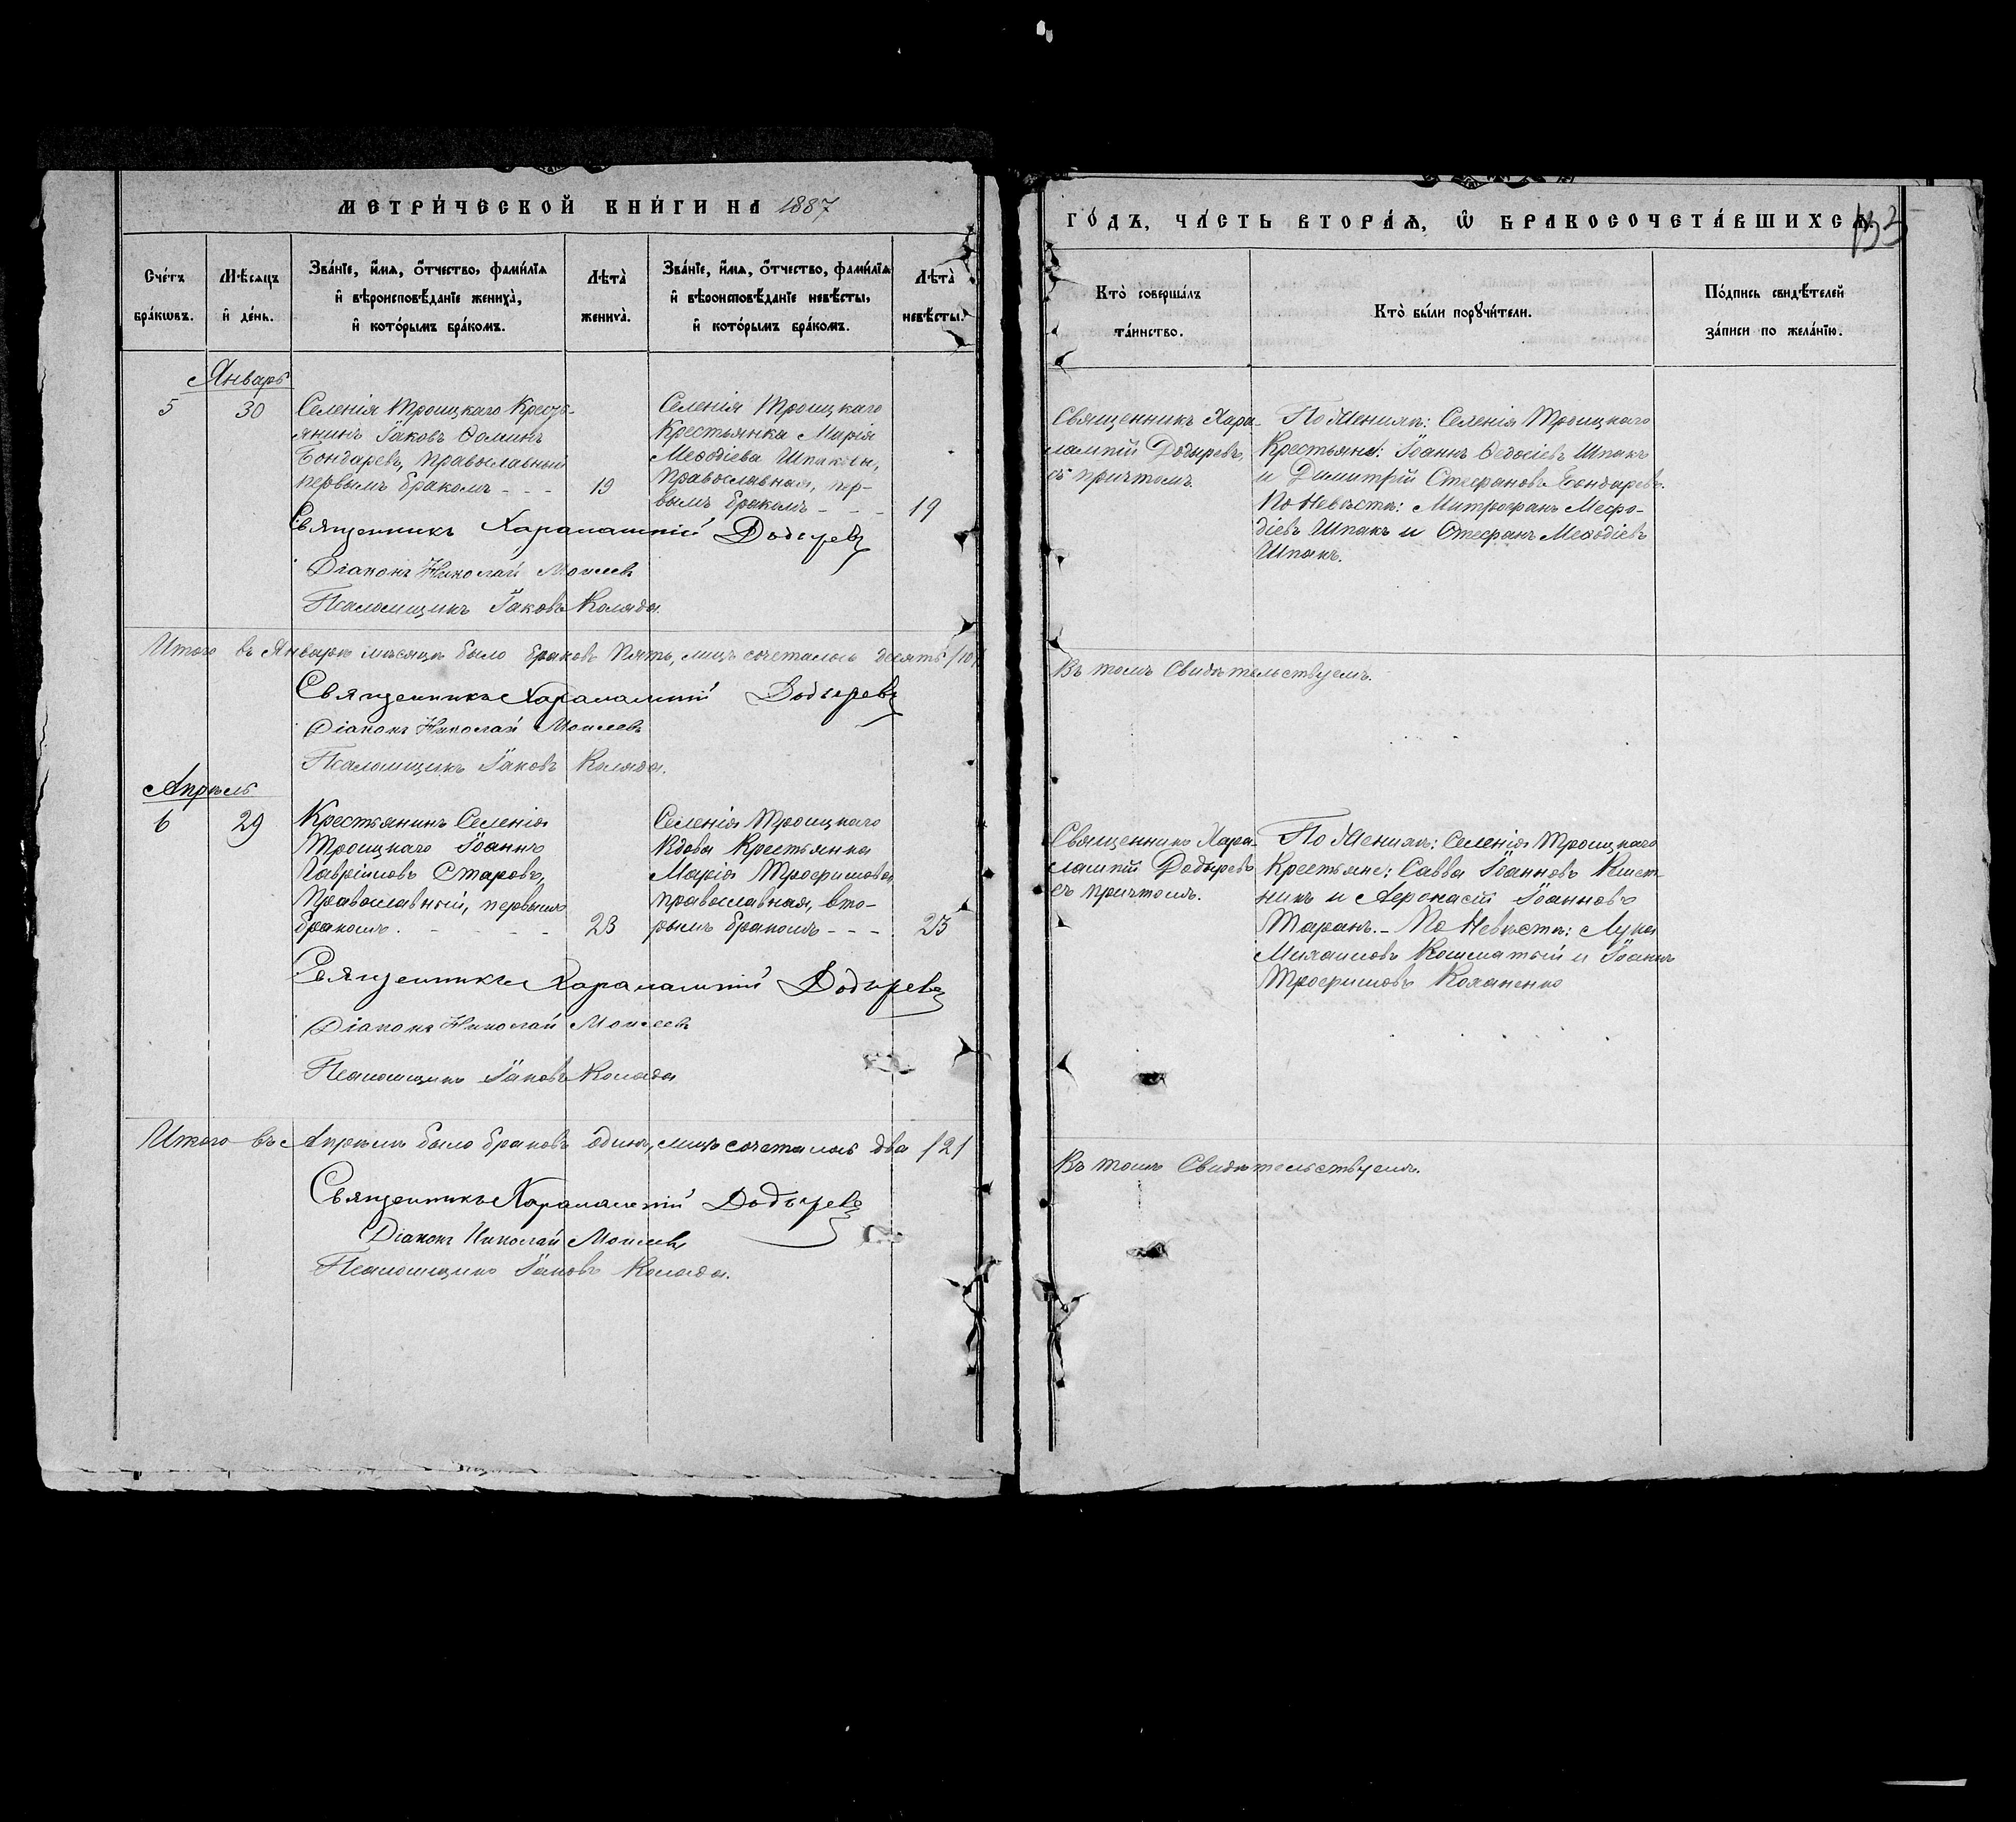 МЕТРИ́ЧЕСКОЙ КНИ́ГИ НА 1887
Сче́тъ бра́кѡвъ.
Мѣ́сяцъ и҆ де́нь.
Зва́нїе, и҆́мѧ, ѻ҆́тчество, фами́лїѧ
и҆ вѣроисповѣ́данїе жениха̀,
и҆ кото́рымъ бра́комъ.
Лѣта̀ жениха̀.
Зва́нїе, и҆́мѧ, ѻ҆́тчество, фами́лїѧ
и҆ вѣроисповѣ́данїе невѣ́сты,
и҆ кото́рымъ бра́комъ.
Лѣта̀ невѣ́сты.
Январь
5
30
Селенія Троицкаго Кресть-
янинъ Іаковъ Ѳоминъ
Бондаревъ, православный
первымъ бракомъ - - -
19
Селенія Троицкаго
Крестьянка Марія
Меѳодіева Шпакъ,
Православная, пер-
вымъ бракомъ - - -
19
Священникъ Харалампій Додыревъ
Діаконъ Николай Моисеевъ
Псаломщикъ Іаковъ Коляда.
Итого въ Январѣ мѣсяцѣ было браковъ пять, лицъ сочеталось десять /10/
Священникъ Харалампій Додыревъ
Діаконъ Николай Моисеевъ
Псаломщикъ Іаковъ Коляда.
Апрѣль
6
29
Крестьянинъ Селенія
Троицкаго Іоаннъ
Гавріиловъ Старовъ,
Православный, первымъ
бракомъ. - - - -
23
Селенія Троицкаго
Вдова Крестьянка
Марія Трофимова,
православная, вто-
рымъ бракомъ - - -
25
Священникъ Харалампій Додыревъ
Діаконъ Николай Моисеевъ
Псаломщикъ Іаковъ Коляда
Итого въ Апрѣлѣ было браковъ одинъ, лицъ сочеталось два /2/
Священникъ Харалампій Додыревъ
Діаконъ Николай Моисеевъ
Псаломщикъ Іаковъ Коляда.
ГО́ДЪ, ЧА́СТЬ ВТОРА́Ѧ, Ѡ҆ БРАКОСОЧЕТА́ВШИХСѦ.
Кто̀ соверша́лъ
та́инство.
Кто̀ бы́ли порꙋчи́тели.
По́дпись свидѣ́телей
за́писи по жела́нїю.
Священникъ Хара-
лампій Додыревъ,
съ причтомъ.
По Женихѣ: Селенія Троицкаго
Крестьяне: Іоаннъ Ѳедосіевъ Шпакъ
и Димитрій Стефановъ Бондаревъ.
По Невѣстѣ: Митрофанъ Мефо-
діевъ Шпакъ и Стефанъ Меѳодіевъ
Шпакъ.
Въ томъ Свидѣтельствуемъ.
Священникъ Хара-
лампій Додыревъ
съ причтомъ.
По Женихѣ: Селенія Троицкаго
Крестьяне: Савва Іоанновъ Решет-
никъ и Аѳонасій Іоанновъ
Таранъ. - По Невѣстѣ: Лука
Михаиловъ Кошматый и Іоаннъ
Трофимовъ Коханенко
Въ томъ Свидѣтельствуемъ.